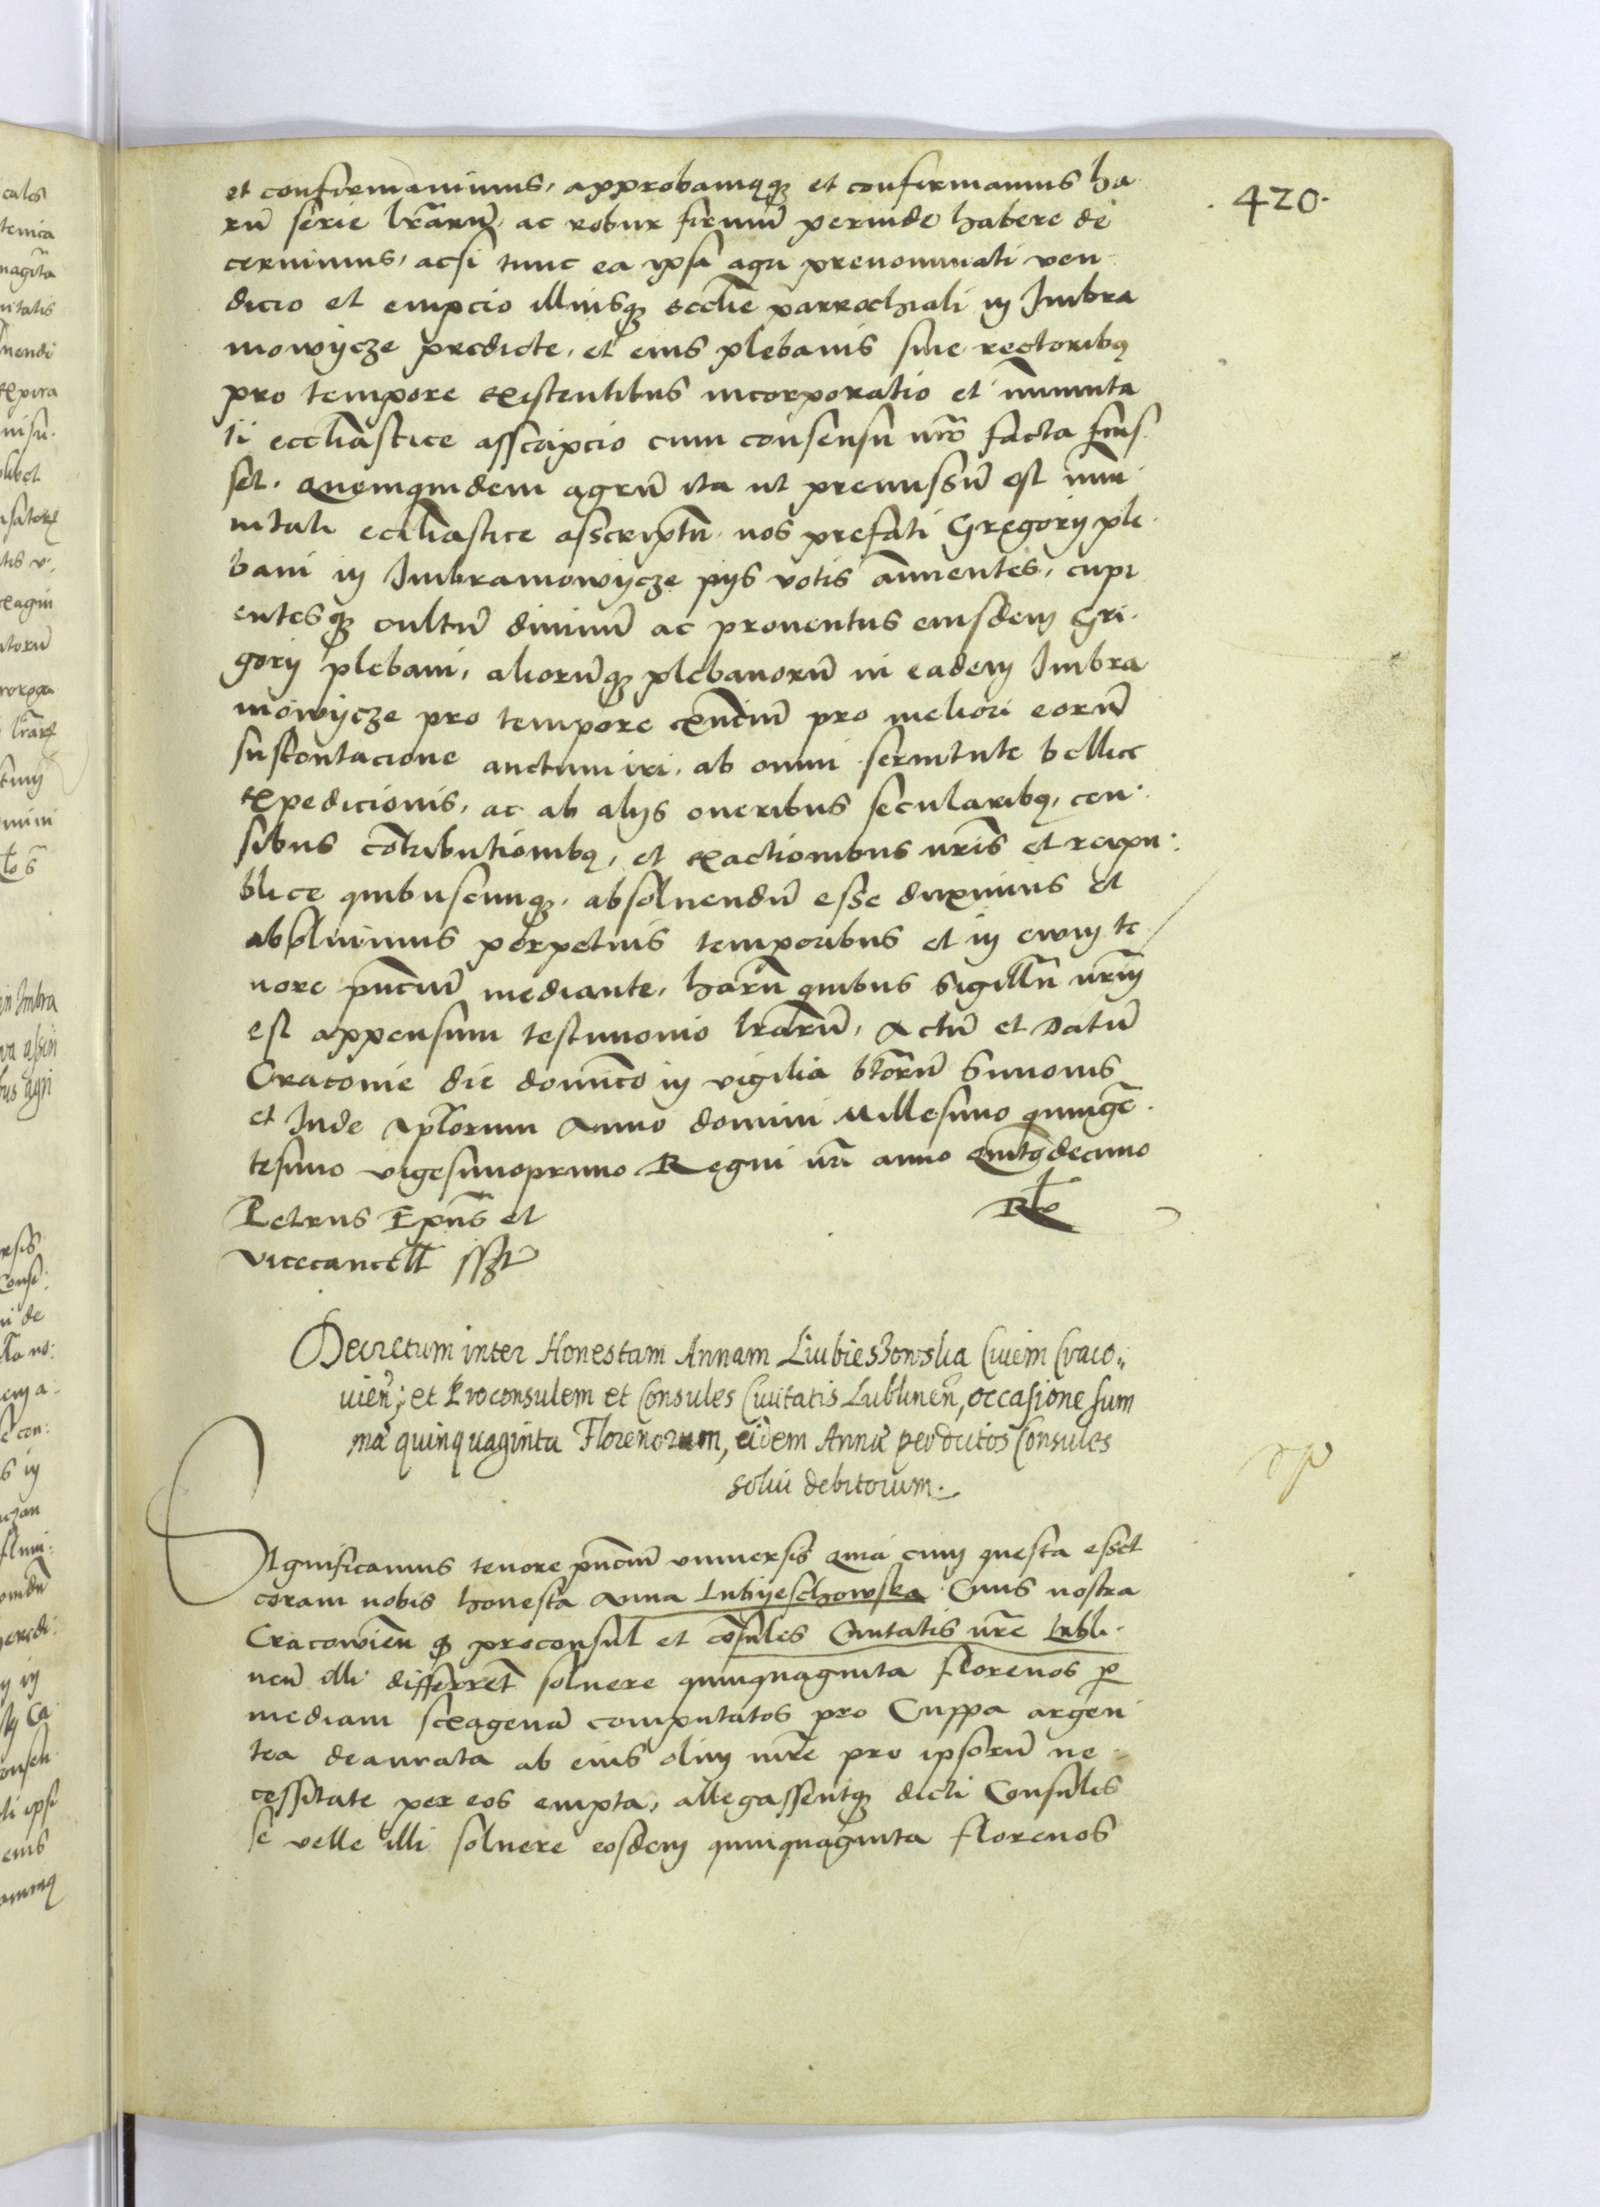 420.
et confirmavimus, approbamusq3 et confirmamus ha
rũ serie lrarũ, ac robur firmũ perinde habere de
cernimus, acsi tunc ea ipsa agri prenominati ven
dicio et empcio illiusq3 ecclie parrochiali in Imbra
mowycze predicte, et eius plebanis sive rectoribq
pro tempore existentibus incorporatio et immunita
ti eccliastice asscripcio cum consensu nro facta fuis
set. Quemquidem agrũ ita ut premissũ est immu
nitati eccliastice asscriptũ nos prefati Gregorij ple
bani in Imbramowycze pijs votis annuentes, cupi
entesq3 cultũ divinũ ac proventus eiusdem Gri
gorij plebani, aliorũq3 plebanorũ in eadem Imbra
mowycze pro tempore exñciũ pro meliori eorũ
sustentacione auctum iri, ab omni servitute bellice
expedicionis, ac ab alijs oneribus secularibq, cen
sibus cõtributionibq, et exactionibus nris et reipu
blice quibuscunq3, absolvendũ esse duximus et
absolvimus perpetuis temporibus et in evum te
nore pñciũ mediante, harũ quibus Sigillũ nrũm
est appensum testimonio lrarũ, Actũ et Datũ
Cracovie die dominico in vigilia btorũ Simonis
et Jude Aplorum Anno domini Millesimo quinge
tesimo vigesimoprimo Regni nri anno Quintodecimo
Petrus Epũs et
Vicecancell sszt
Decretum inter Honestam Annam Liubieszowska Civem Craco„
vieñ; et Proconsulem et Consules Civitatis Lublineñ, occasione sum
mæ quinquaginta Florenorum, eidem Annæ per dictos Consules
solvi debitorum.
Significamus tenore pñciũ universis Quia cum questa esset
coram nobis honesta Anna Lubyeschowska Civis nostra
Cracowieñ q proconsul et cõsules Civitatis nre Lubli
neñ illi differrẽt solvere quinquaginta florenos p
mediam sexagenã computatos pro Cuppa argen
tea deaurata ab eius olim mre pro ipsorũ ne
cessitate per eos empta, allegassentq3 dicti Consules
se velle illi solvere eosdem quinquaginta florenos